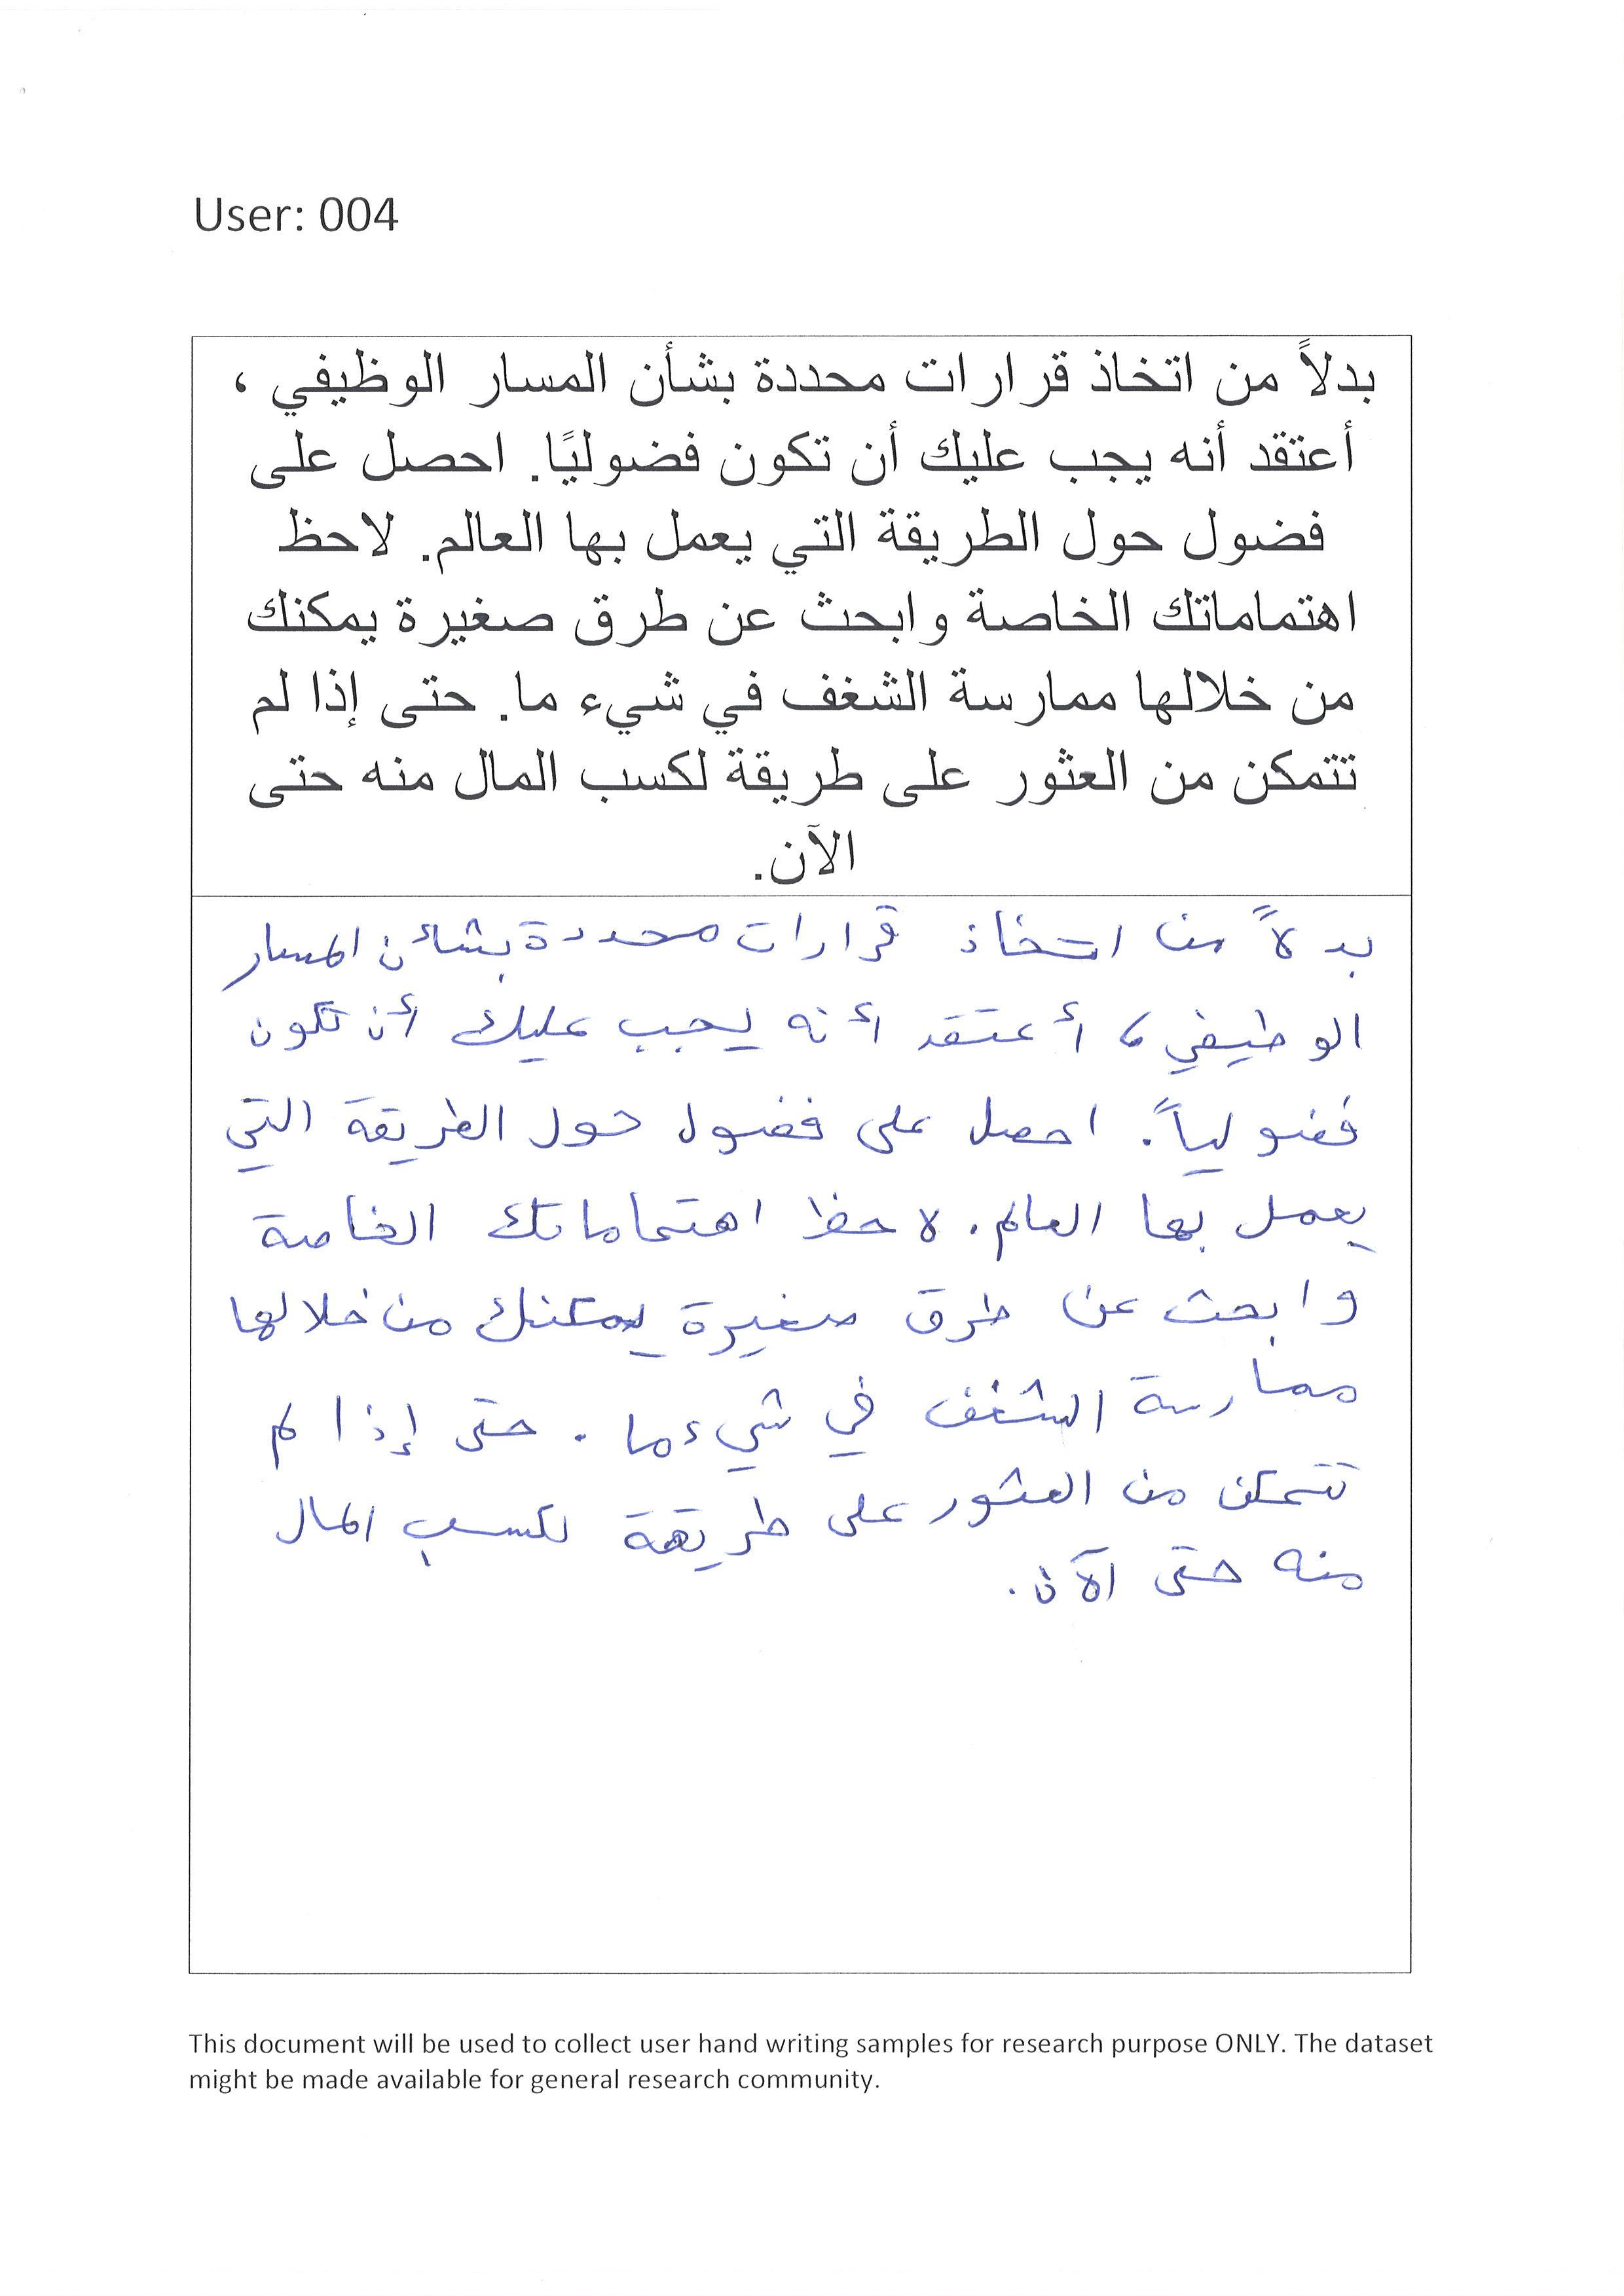 User: 004
بدلاً من اتخاذ قرارات محددة بشأن المسار الوظيفي ،
أعتقد أنه يجب عليك أن تكون فضوليًا. احصل على
فضول حول الطريقة التي يعمل بها العالم. لاحظ
اهتماماتك الخاصة وابحث عن طرق صغيرة يمكنك
من خلالها ممارسة الشغف في شيء ما. حتى إذا لم
تتمكن من العثور على طريقة لكسب المال منه حتى
الآن.
بدلاً من اتخاذ قرارات محددة بشأن المسار
الوظيفي، أعتقد أنه يجب عليك أن تكون
فضولياً. احصل على فضول حول الطريقة التي
يعمل بها العالم. لاحظ اهتماماتك الخاصة
وابحث عن طرق صغيرة يمكنك من خلالها
ممارسة الشغف في شيء ما. حتى إذا لم
تتمكن من العثور على طريقة لكسب المال
منه حتى الآن.
This document will be used to collect user hand writing samples for research purpose ONLY. The dataset
might be made available for general research community.